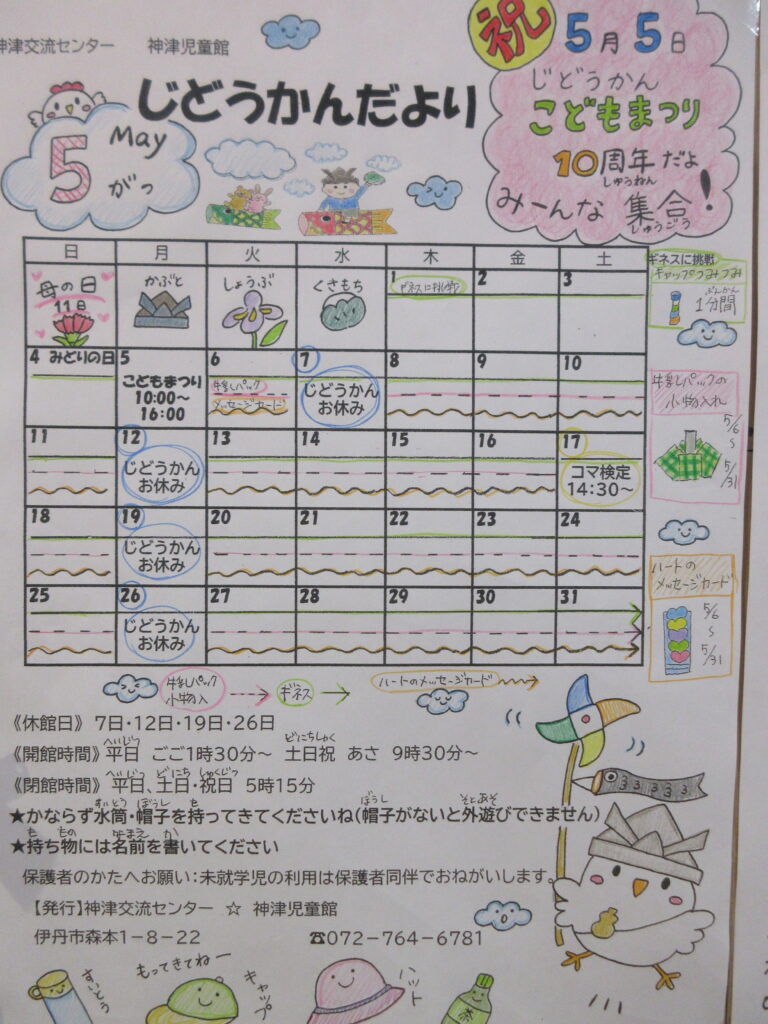 神津交流センター 神津児童館
じどうかんだより
5 May がつ
祝 5月5日
じどうかん
こどもまつり
10周年だよ
しゅうねん
みーんな 集合!
しゅうごう
日 月 火 水 木 金 土
母の日 11日 かぶと しょうぶ くさもち 1 ギネスに挑戦 2 3
4 みどりの日 5 こどもまつり 10:00~16:00 6 牛乳パック メッセージカード 7 じどうかんお休み 8 9 10
11 12 じどうかんお休み 13 14 15 16 17 コマ検定 14:30~
18 19 じどうかんお休み 20 21 22 23 24
25 26 じどうかんお休み 27 28 29 30 31
ギネスに挑戦
キャップつみつみ
ぷんかん
1分間
牛乳パックの
小物入れ
5/6
5/31
ハートの
メッセージカード
5/6
5/31
牛乳パック
小物入
ギネス
ハートのメッセージカード
《休館日》 7日・12日・19日・26日
へいじつ どにちしゅく
《開館時間》 平日 ごご1時30分~ 土日祝 あさ 9時30分~
へいじつ どにち しゅくじつ
《閉館時間》 平日、土日・祝日 5時15分
すいとう ぼうし も ぼうし そとあそ
★かならず水筒・帽子を持ってきてくださいね(帽子がないと外遊びできません)
も もの なまえ か
★持ち物には名前を書いてください
保護者のかたへお願い:未就学児の利用は保護者同伴でおねがいします。
【発行】神津交流センター ☆ 神津児童館
伊丹市森本1-8-22 ☎072-764-6781
すいとう
もってきてねー
キャップ
ハット